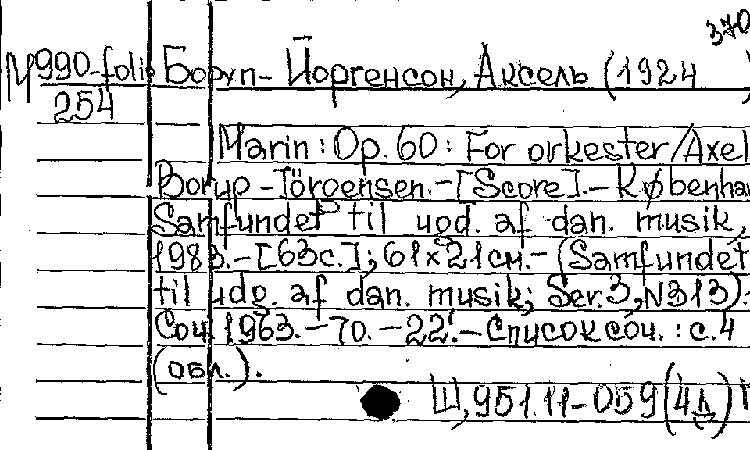 370
М990-folio Боруп-Йоргенсон, Аксель (1924
254
Marin : Op. 60 : For orkester / Axel
Borup-Jörgensen. - [Score]. - Københa
Samfundet til ugd. af dan. musik,
1983. - [63c.]; 61×21см. - (Samfundet
til udg. af dan. musik; Ser. 3, N313).
Соч. 1963. - 70. - 22'. - Список соч. : с. 4
(обл.).
Ш, 951.11-059(4Д)